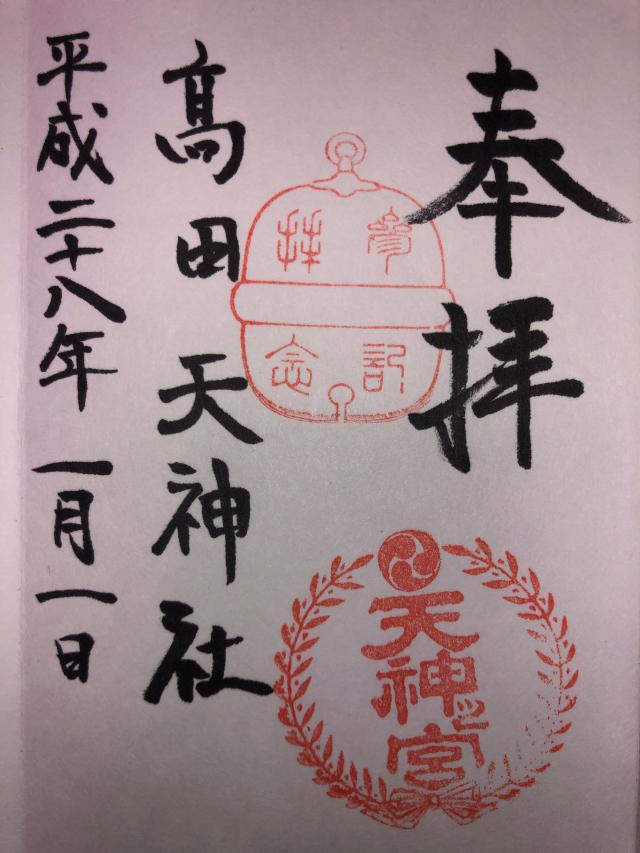 奉拝
參拝
記念
天神宮
髙田天神社
平成二十八年一月一日